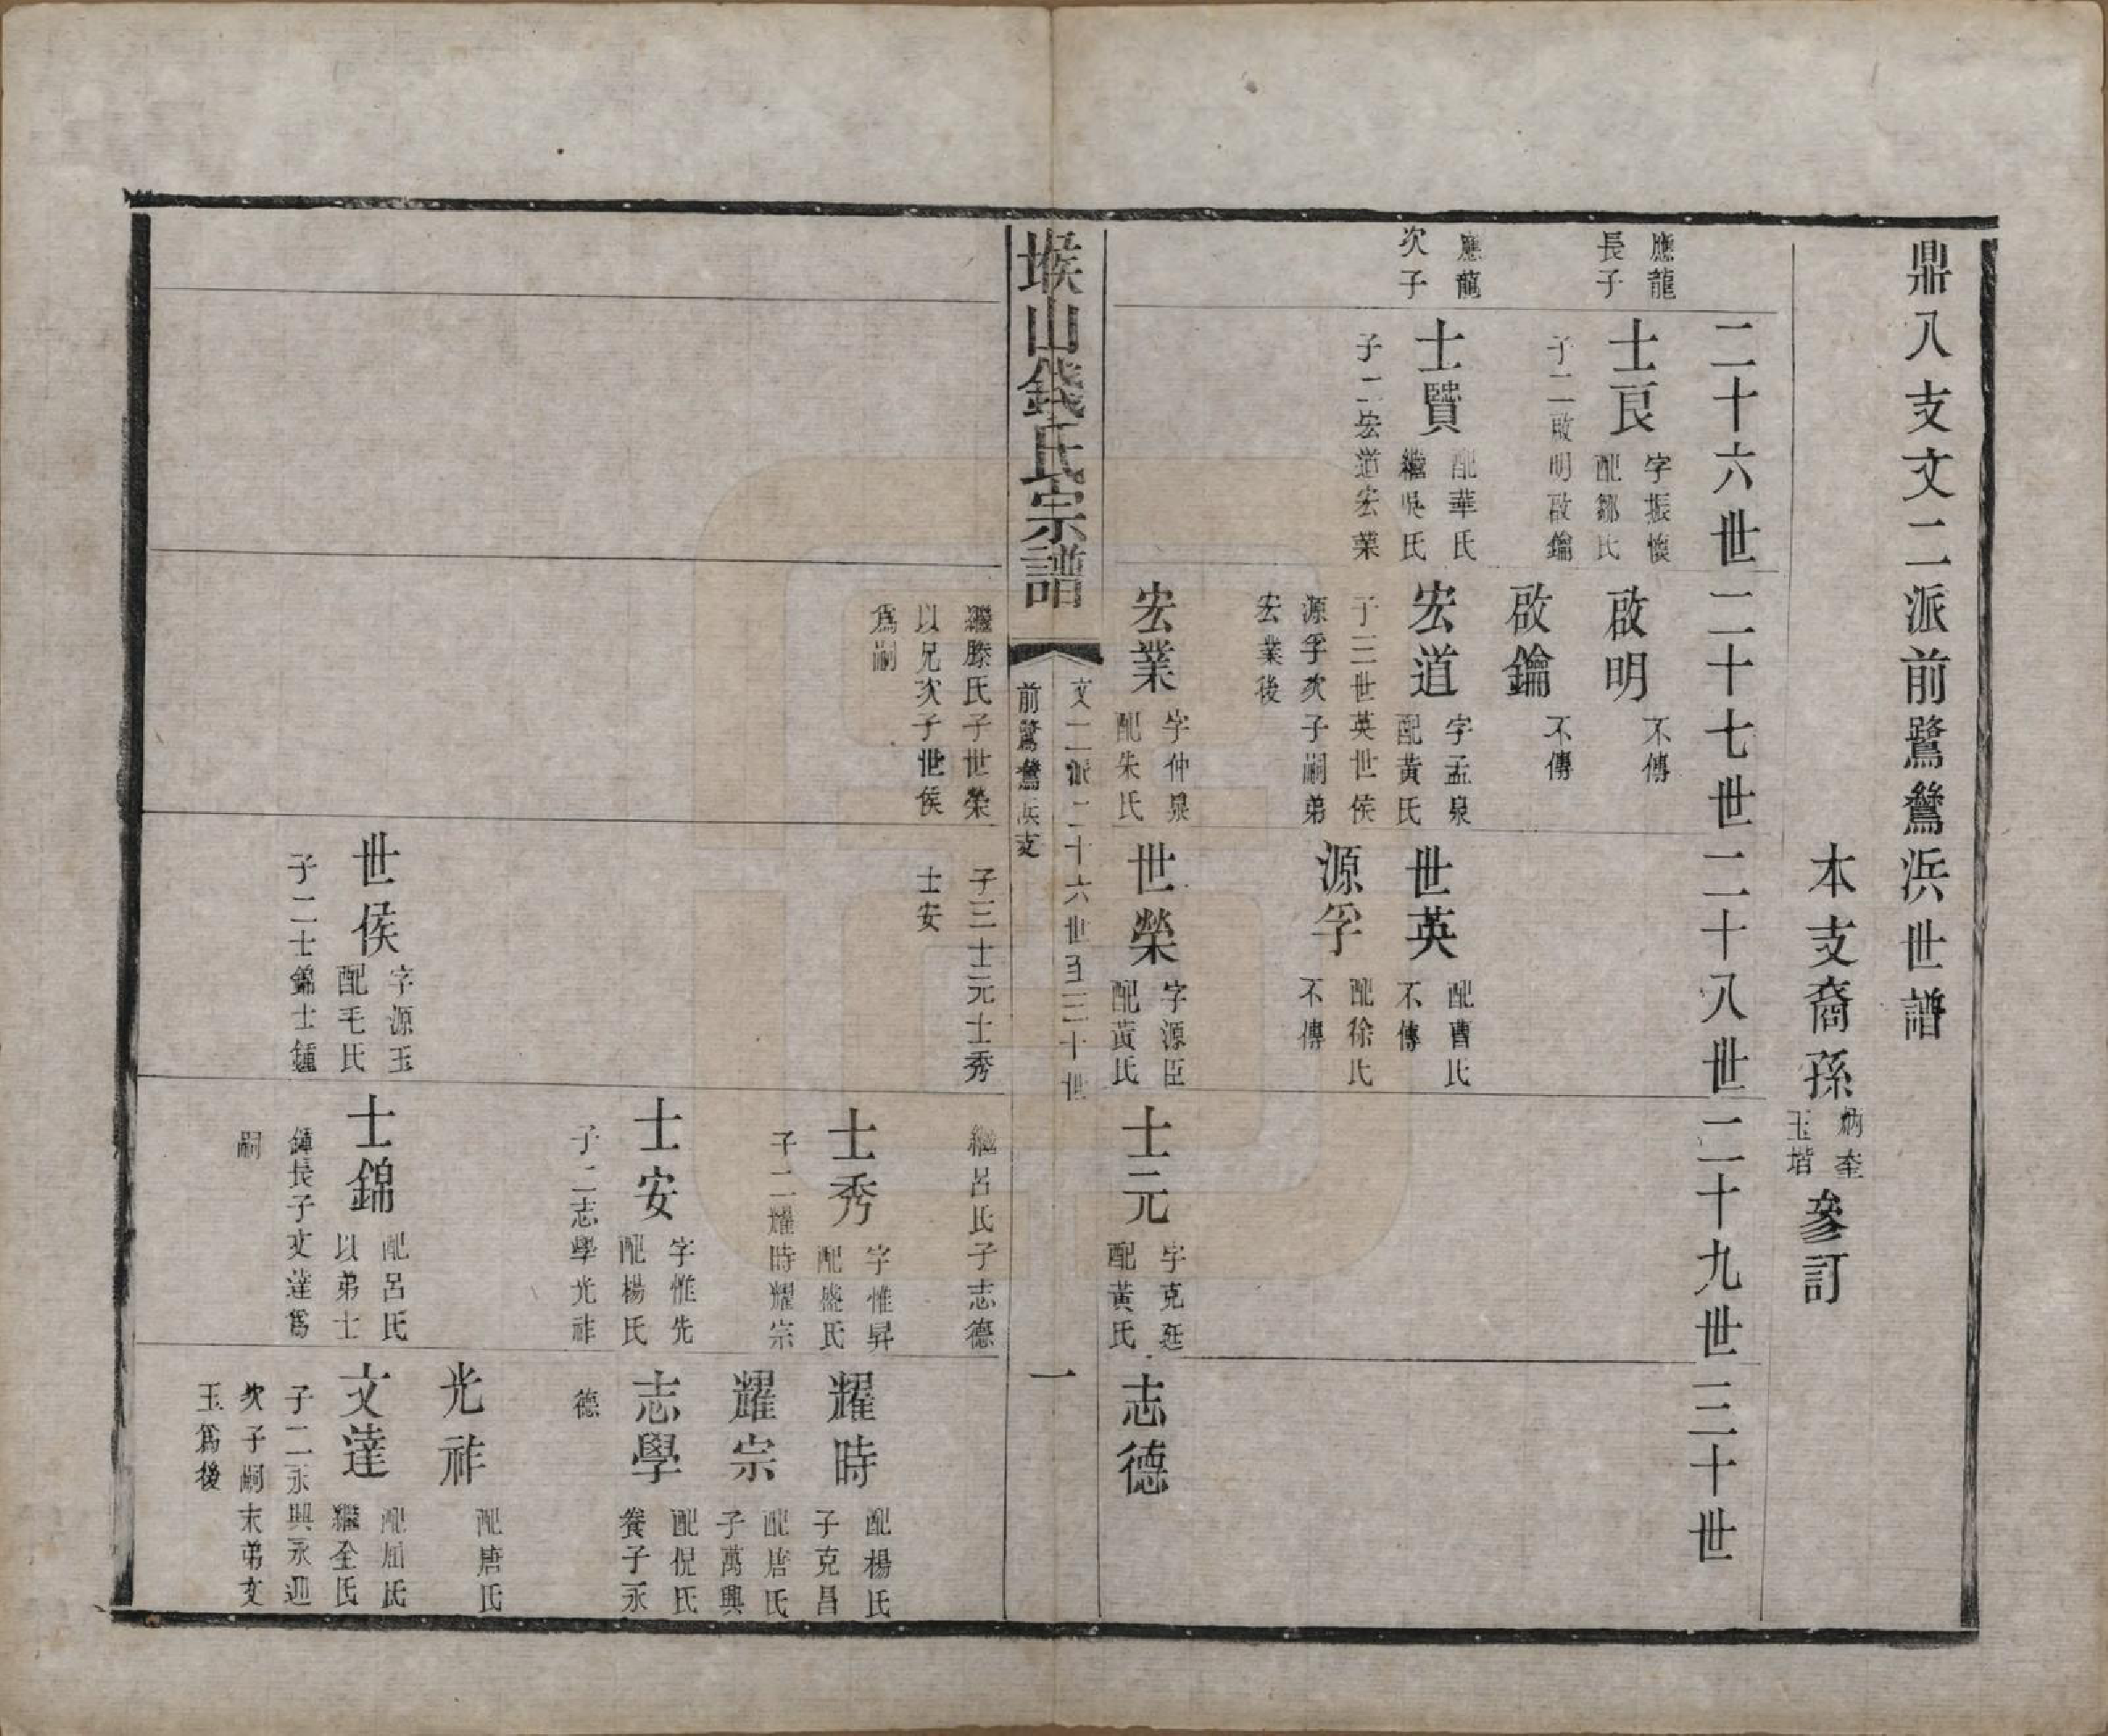 鼎八支文二派前鷺鴦浜世譜
本支裔孫炳奎玉堦參訂
二十六世
二十七世
二十八世
二十九世
三十世
應龍長子
士良
字振懷
配鄒氏
子二啟明啟鑰
應龍次子
士賢
配華氏
繼吳氏
子二宏道宏業
啟明
不傳
啟鑰
不傳
宏道
字孟泉
配黃氏
子三世英世侯
源孚次子嗣弟
宏業後
宏業
字仲泉
配朱氏
世英
配曹氏
不傳
源孚
配徐氏
不傳
世榮
字源臣
配黃氏
士元
字克廷
配黃氏
志德
堠山錢氏宗譜
文二派二十六世至三十世
前鷺鴦浜支
一
繼滕氏子世榮
以兄次子世侯
爲嗣
子三士元士秀
士安
世侯
字源玉
配毛氏
子二士錦士鍾
繼呂氏子志德
士秀
字惟昇
配盛氏
子二耀時耀宗
士安
字惟先
配楊氏
子二志學光祚
士錦
配呂氏
以弟士
鍾長子文達爲
嗣
耀時
配楊氏
子克昌
耀宗
配唐氏
子萬興
志學
配倪氏
養子永
德
光祚
配唐氏
文達
配屈氏
繼全氏
子二永興永迎
次子嗣末弟文
玉爲後